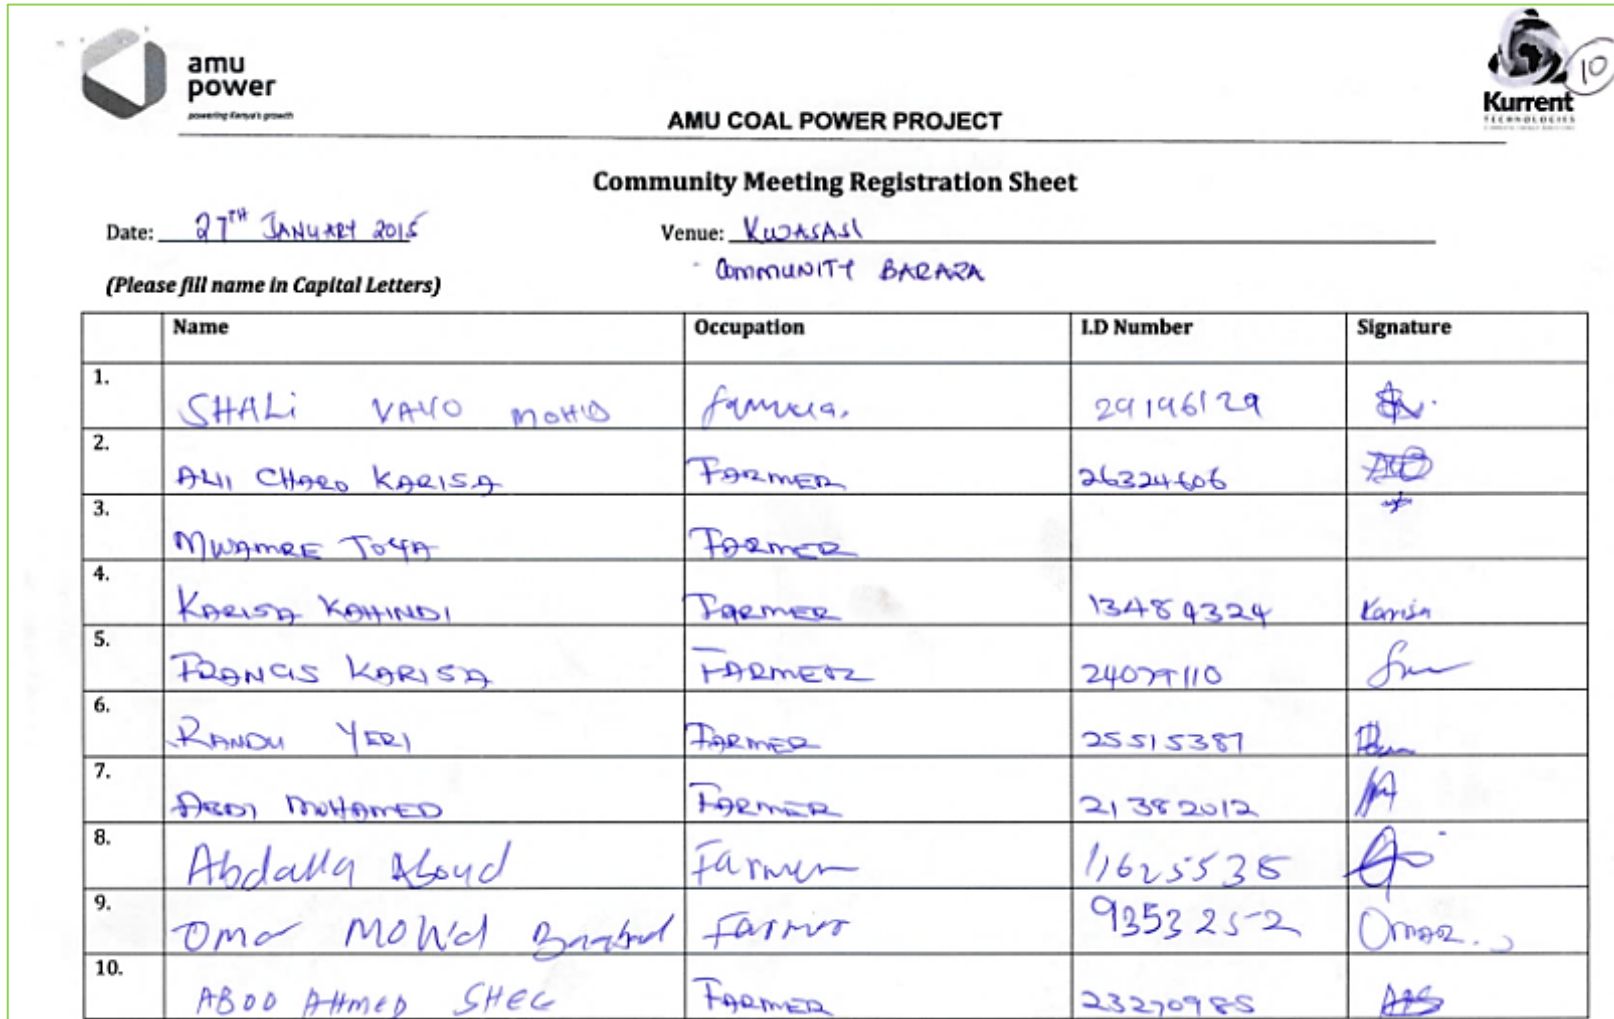 amu
power
powering Kenya's growth
10
Kurrent
TECHNOLOGIES
AMU COAL POWER PROJECT
Community Meeting Registration Sheet
Date: 27TH JANUARY 2015 Venue: KWASASI
COMMUNITY BARAZA
(Please fill name in Capital Letters)
Name Occupation I.D Number Signature
1. SHALi VAYO MOHD 29196129
2. ALII CHARO KARISA FARMER 26324606
3. MWAMRE TOYA FARMER
4. KARISA KAHINDI FARMER 13484324 Karisa
5. FRANCIS KARISA FARMER 24079110
6. RANDU YERI FARMER 25515387
7. ABDI MUHAMED FARMER 21382012
8. Abdalla Aboud Farmer 11625535
9. Omar MOHd Farmer 9353252 OMAR.
10. ABDD AHMED SHEE FARMER 23270985